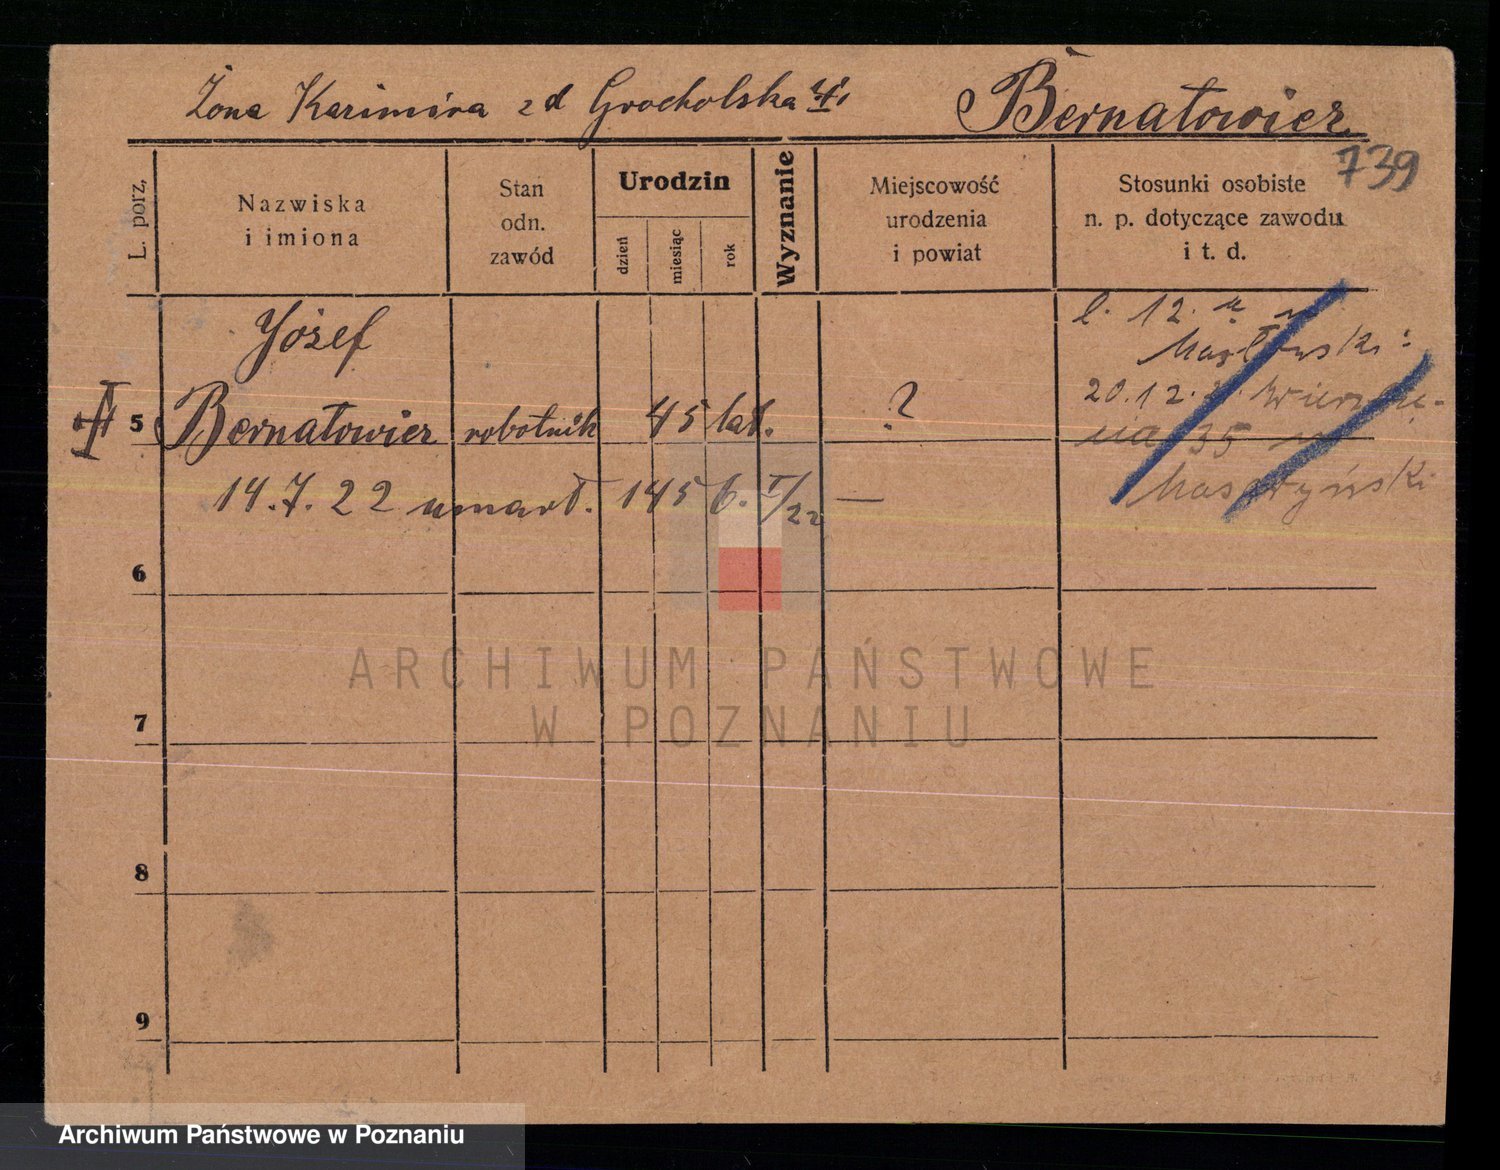 Żona Kazimira z d Grocholska
Bernatowicz
739
L. porz.
Nazwiska
i imiona
Stan
odn.
zawód
Urodzin
dzień
miesiąc
rok
Wyznanie
Miejscowość
urodzenia
i powiat
Stosunki osobiste
n. p. dotyczące zawodu
i t. d.
Józef
5 Bernatowicz robotnik 45 lat. ?
14.7.22 umarł. 145 b. I/22 —
l. 12.
20.12.
35
6
7
8
9
ARCHIWUM PAŃSTWOWE
W POZNANIU
Archiwum Państwowe w Poznaniu